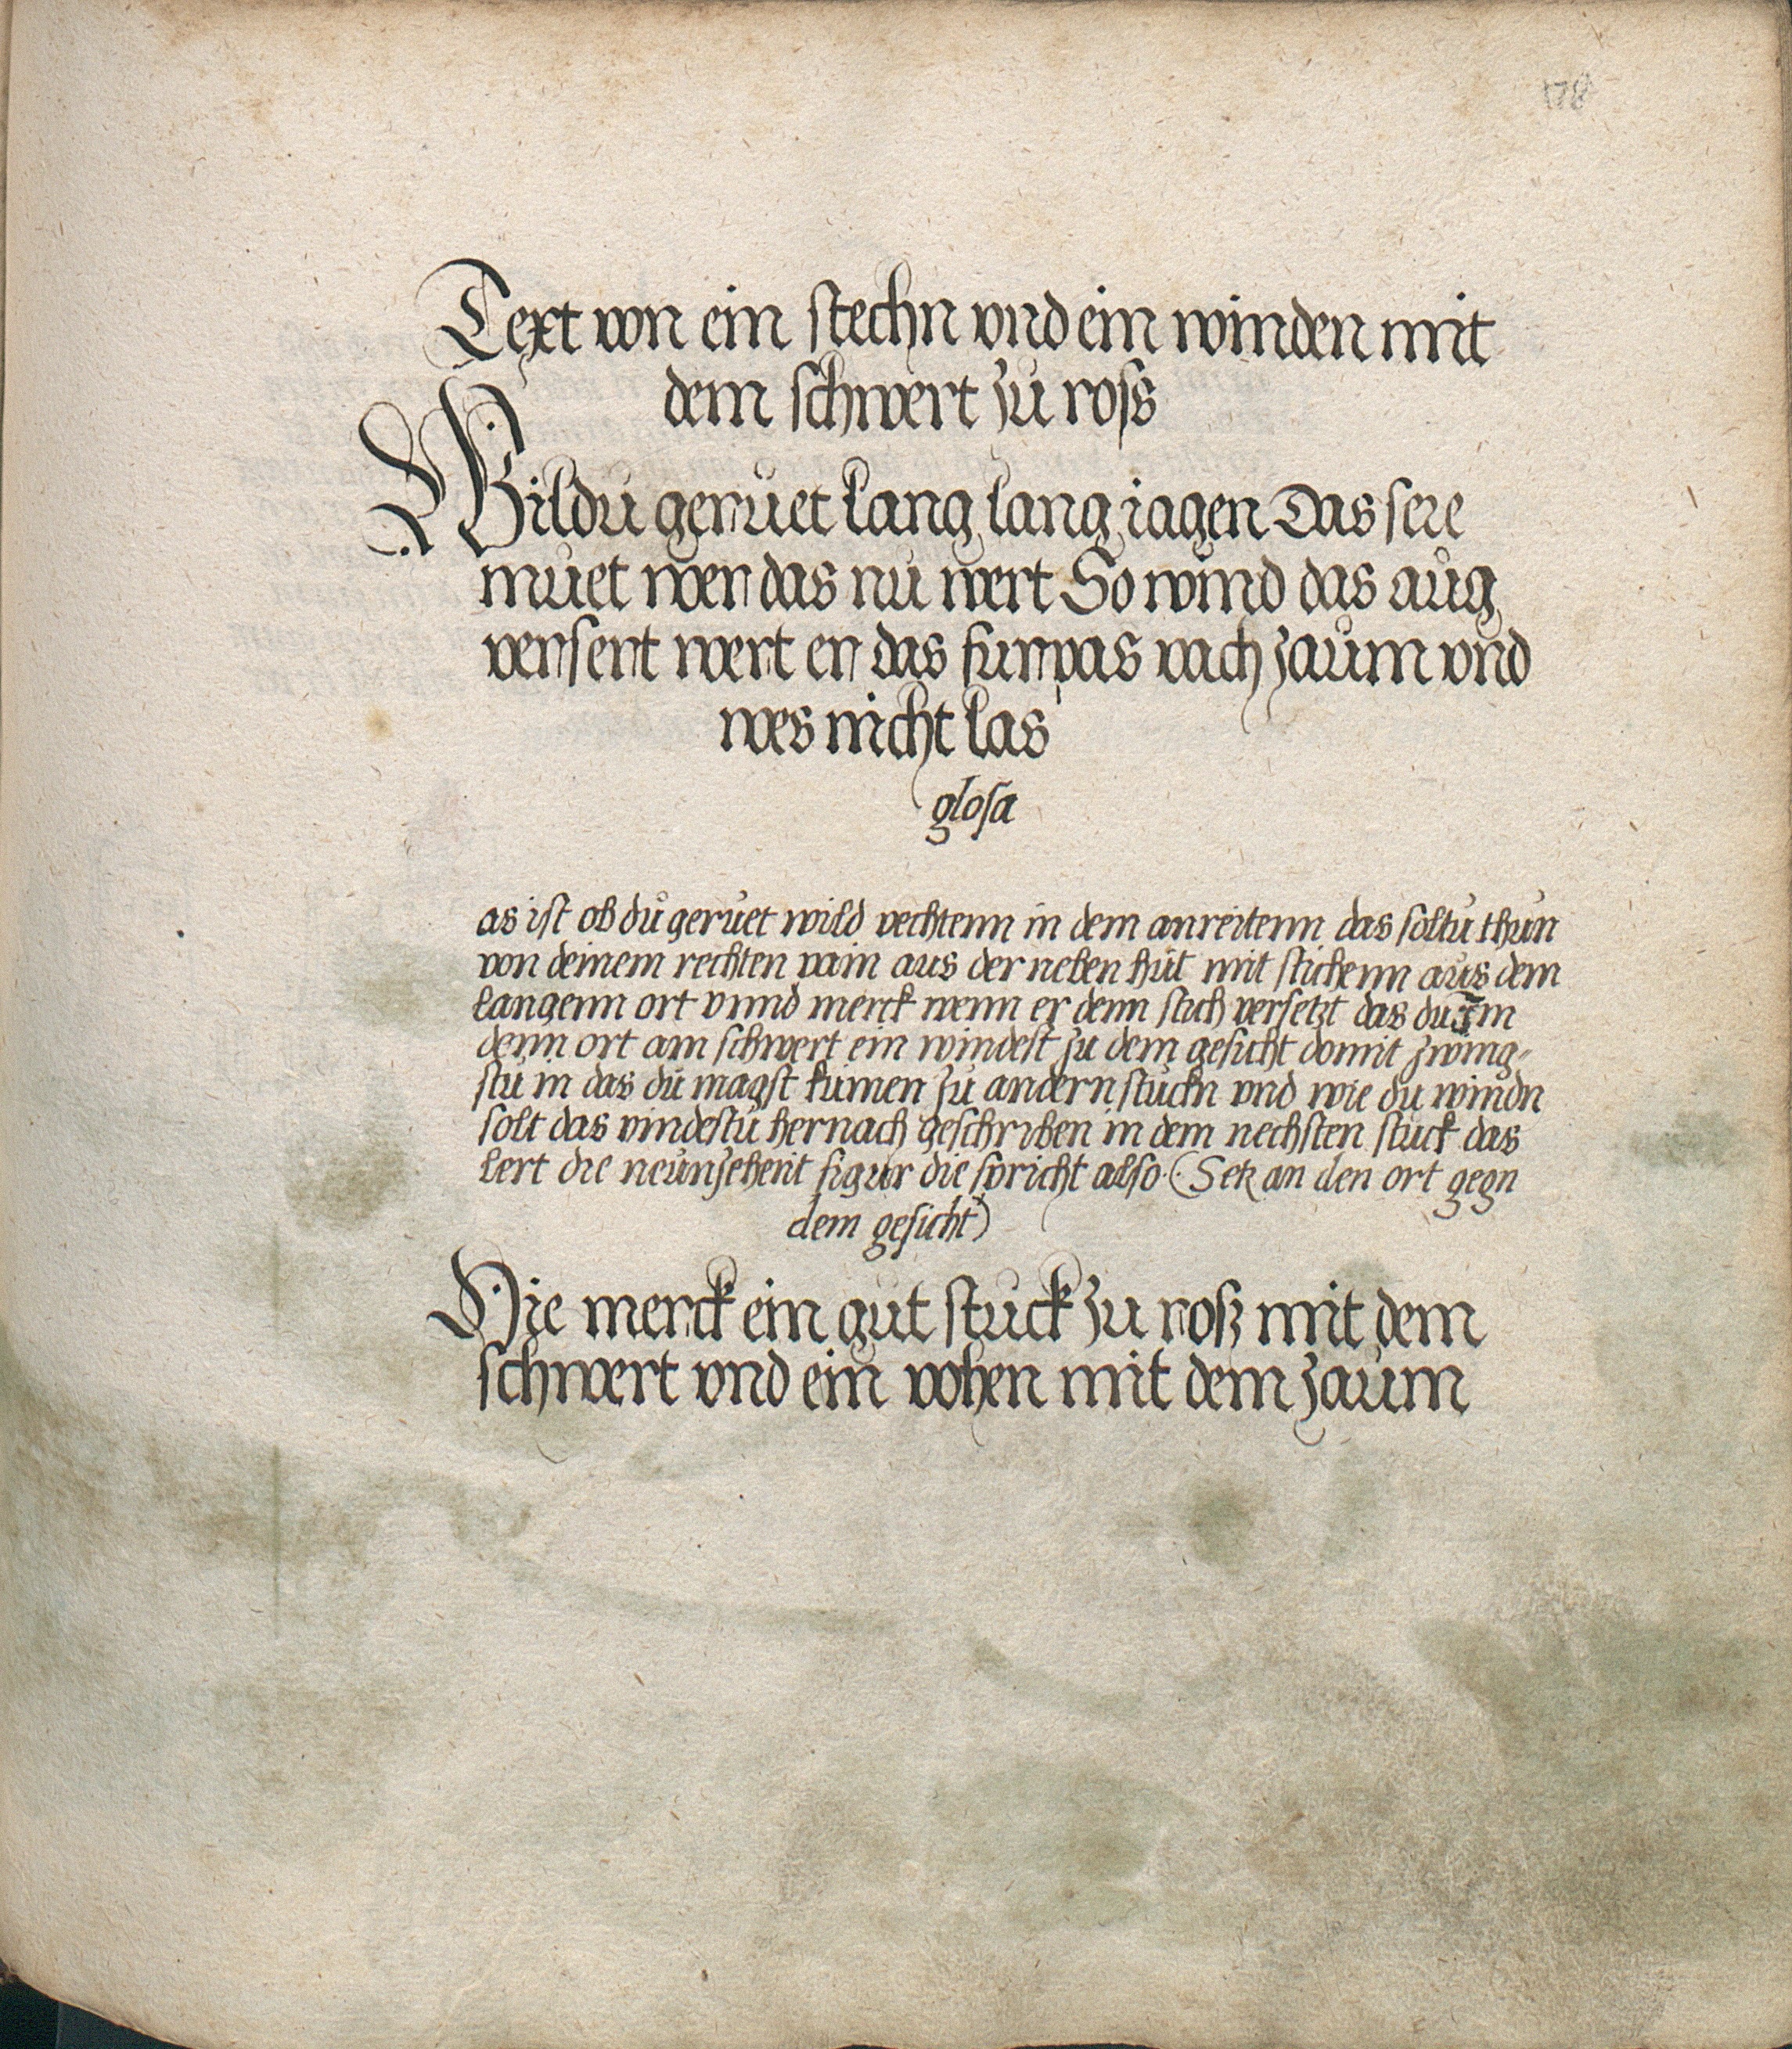 178
Text von ein stechn vnd ein winden mit
dem schwert zu ross
Wildu geruet lang lang iagen Das sere
muet wer das nu wert So wind das aug
versert wert er das furpas vach zaum vnd
wes nicht las
glosa
as ist ob du geruet wild vechtenn in dem anreitenn das soltu thun
von deinem rechten pain aus der neben hut mit stichenn aus dem
langenn ort vnnd merck wenn er denn stich versetzt das du im
denn ort am schwert ein windest zu dem gesicht domit zwing-
stu in das du magst kumen zu andern stuckn vnd wie du windn
solt das vindestu hernach geschriben in dem nechsten stuck das
lert die neunzehent figur die spricht also (Setz an den ort gegn
dem gesicht)
Hie merck ein gut stuck zu rosz mit dem
schwert vnd ein vohen mit dem zaum